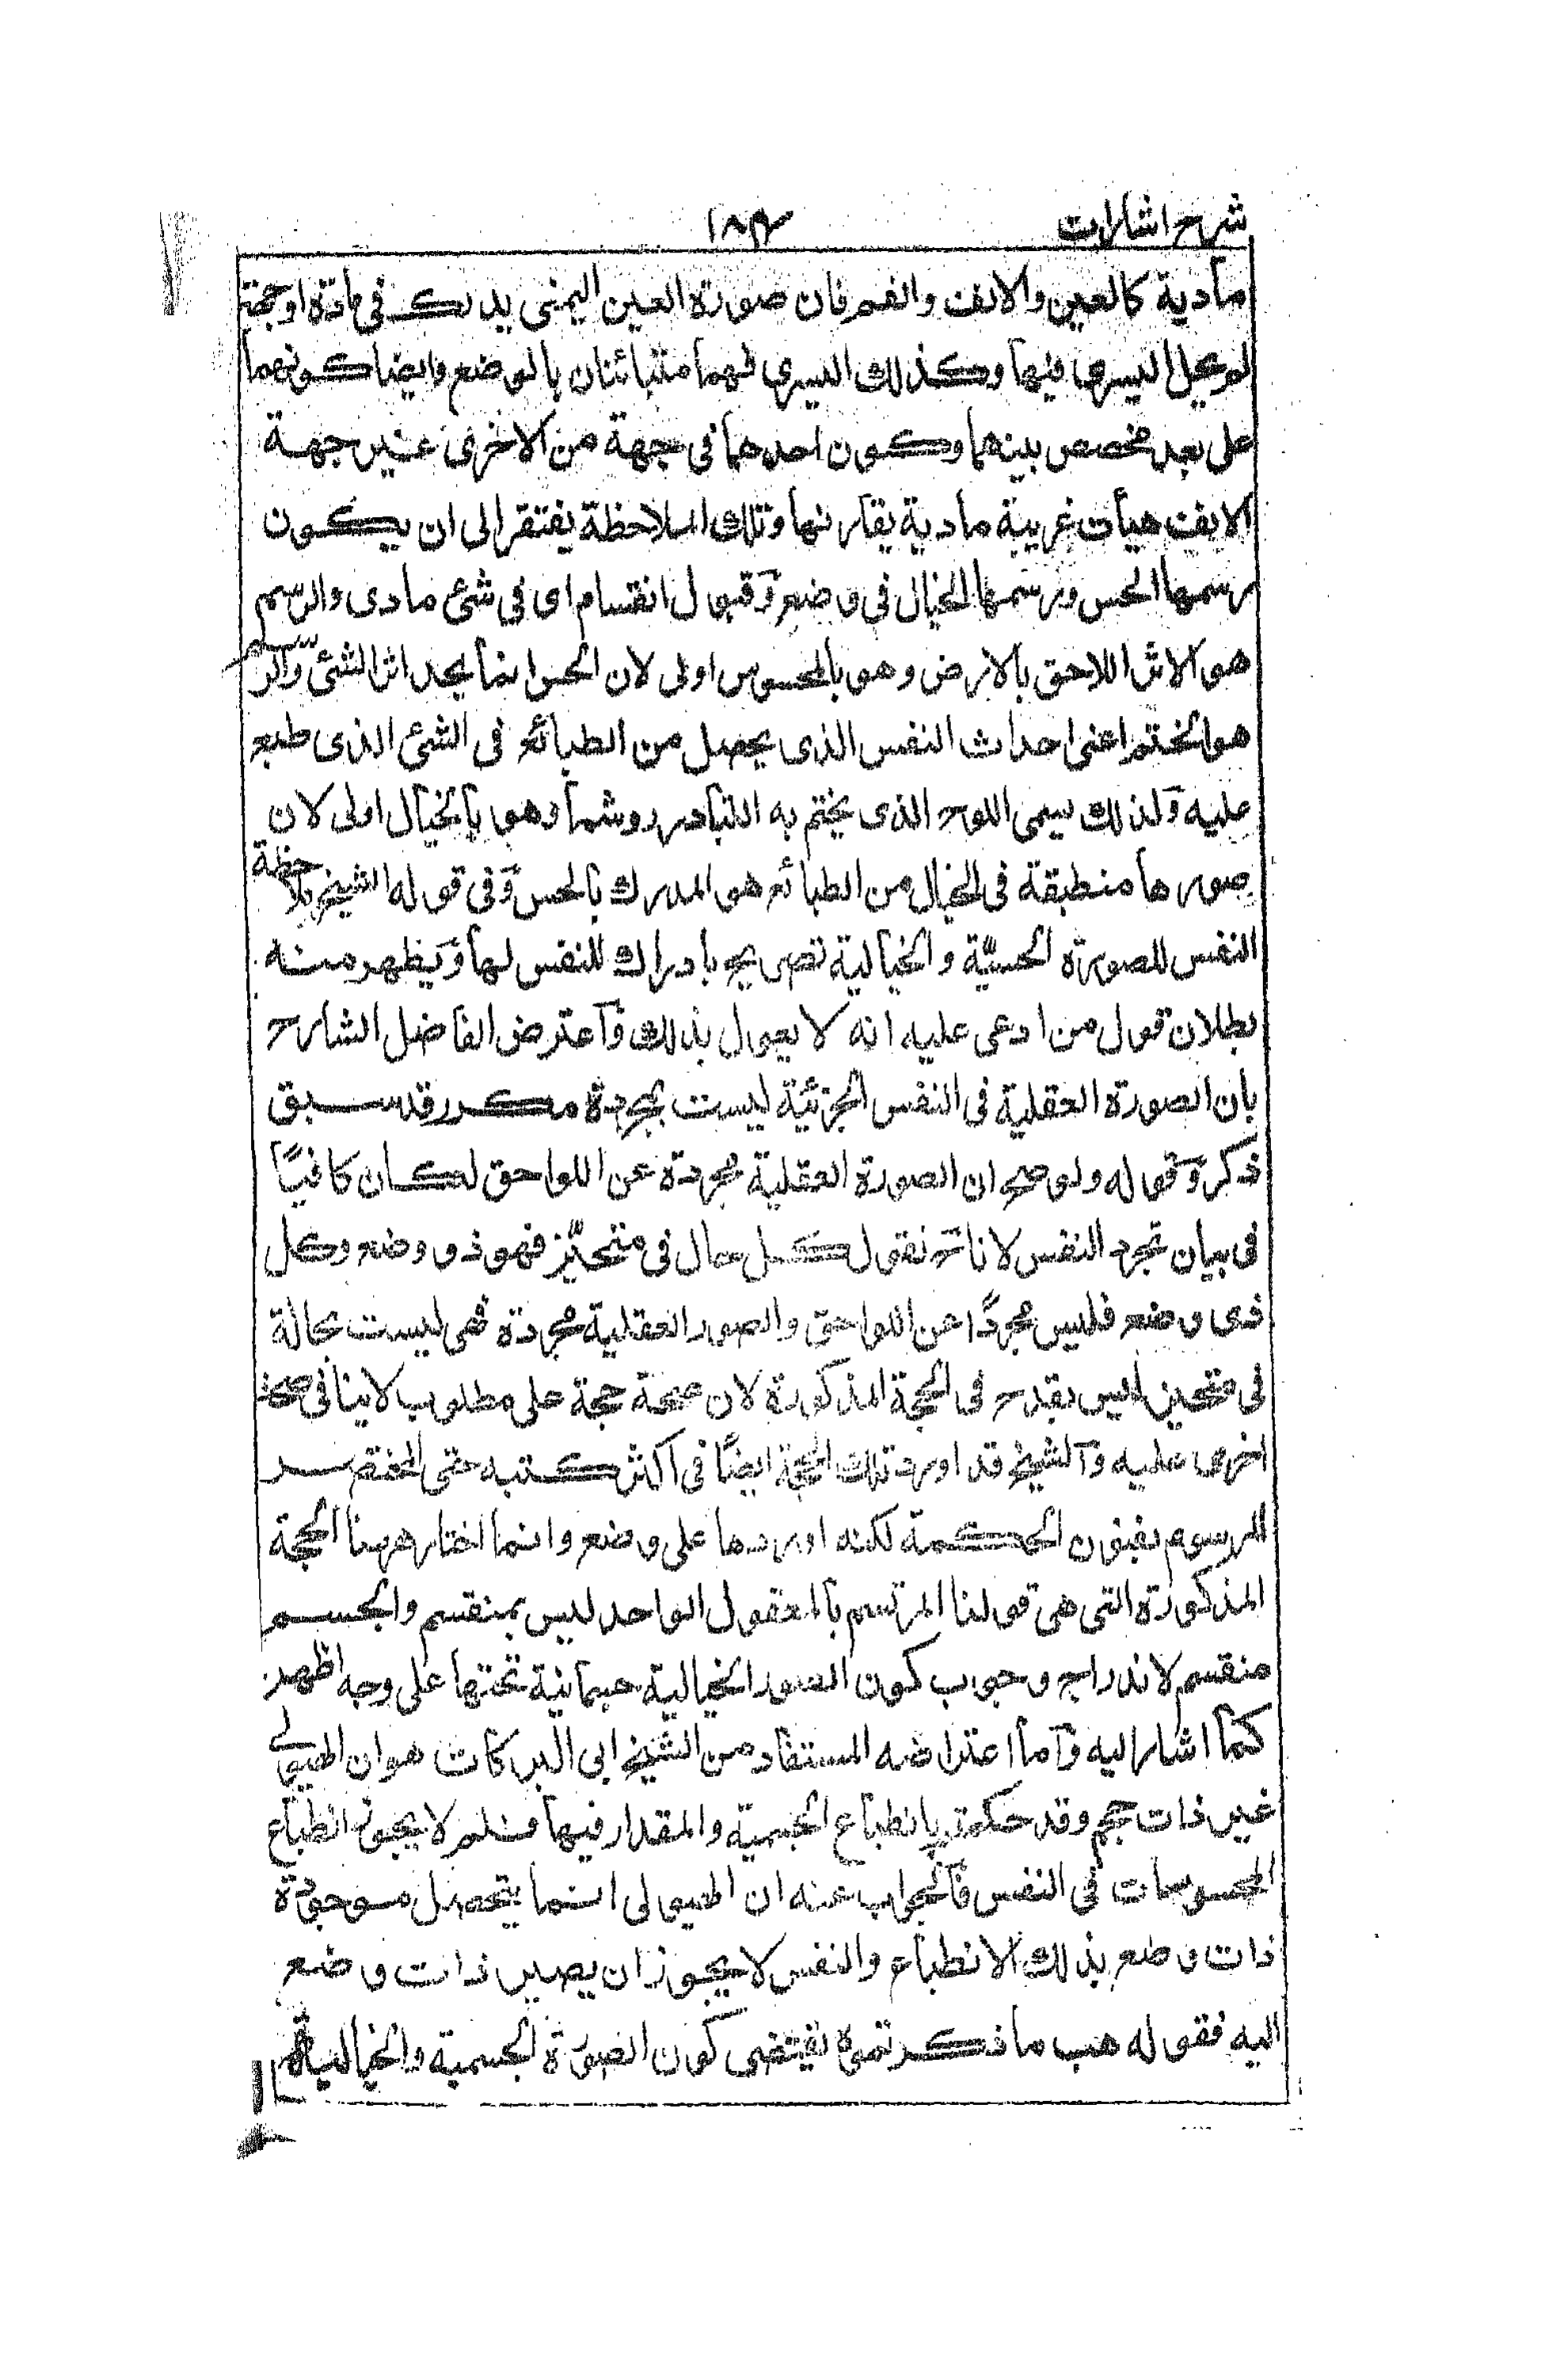 شرح اشارات ١٨٣
مادية كالعين والانف والفم فان صورة العين اليمنى يدرك فى مادة او جهة
لم يحل اليسرى فيها وكذلك اليسرى فهما متبائنان بالوضع وايضا كونهما
على بعد مخصص بينهما وكون احدهما فى جهة من الاخرى غير جهة
الانف هيأت غريبة مادية يقارنها وتلك الملاحظة يفتقر الى ان يكون
رسمها الحس ورسمها الخيال فى وضع وقبول انقسام اى فى شئ مادى والرسم
هو الاثر اللاحق بالارض وهو بالمحسوس اولى لان الحس انما يجد اثر الشئ والرشم
هو الختم اعنى احداث النفس الذى يحصل من الطبائع فى الشئ الذى طبع
عليه ولذلك يسمى اللوح الذى يختم به البيادر روشما وهو بالخيال اولى لان
صورها منطبقة فى الخيال من الطبائع هو المدرك بالحس وفى قوله الشيخ ملاحظة
النفس للصورة الحسيّة والخيالية تصريح بادراك للنفس لها ويظهر منه
بطلان قول من ادعى عليه انه لا يقول بذلك واعترض الفاضل الشارح
بان الصورة العقلية فى النفس الجزئية ليست بمجردة مكرر قد سبق
ذكر وقوله ولو صح ان الصورة العقلية مجردة عن اللواحق لكان كافيًا
فى بيان تجرد النفس لانا نقول كل حال فى متحيّز فهو ذو وضع وكل
ذى وضع فليس مجردًا عن اللواحق والصور العقلية مجردة فهى ليست بحالة
فى متحيز ليس بقدح فى الحجة المذكورة لان صحة حجة على مطلوب لا ينافى صحة
اخرى عليه والشيخ قد اورد تلك الحجة ايضًا فى اكثر كتبه حتى المختصر
المرسوم بعيون الحكمة لكنه اوردها على وضع وانما اختار ههنا الحجة
المذكورة التى هى قولنا المرتسم بالمعقول الواحد ليس بمنقسم والجسم
منقسم لاندراج وجوب كون الصور الخيالية جسمانية تحتها على وجه اظهر
كما اشار اليه واما اعتراضه المستفاد من الشيخ ابى البركات هو ان الهيولى
غير ذات حجم وقد حكمتم بانطباع الجسمية والمقدار فيها فلم لا يجوز انطباع
المحسوسات فى النفس فالجواب عنه ان الهيولى انما يتحصل موجودة
ذات وضع بذلك الانطباع والنفس لا يجوز ان يصير ذات وضع
اليه فقوله هب ما ذكرتموه يقتضى كون الصورة الجسمية والخيالية